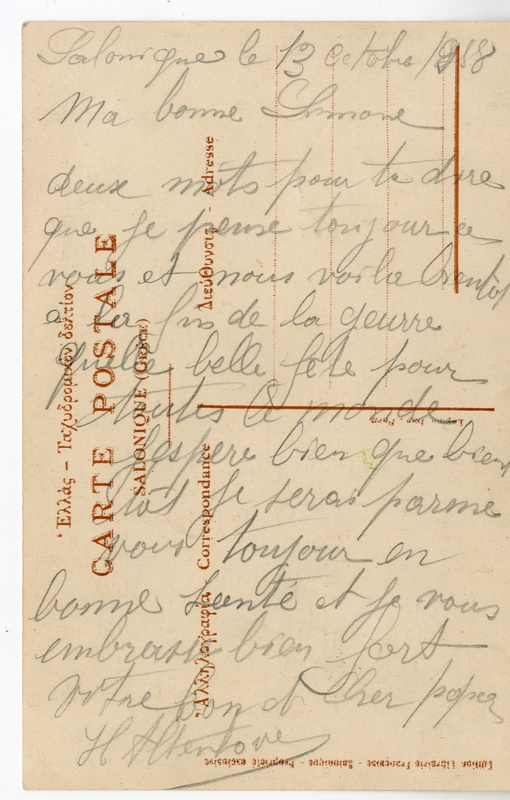 Salonique le 13 octobre 1918
Ma bonne Simone
deux mots pour te dire
que je pense toujour a
vous et nous voila bientot
a la fin de la geurre
quelle belle fete pour
toutes le monde
j'espere bien que bien
tôt je serai parmie
vous toujour en
bonne santé et je vous
embrasse bien fort
votre bon et cher papa
H
Ἑλλὰς – Ταχυδρομικὸν δελτίον
CARTE POSTALE
SALONIQUE (GRÈCE)
Ἀλληλογραφία Correspondance
Διεύθυνσις Adresse
Edition Librairie Française - Salonique - Propriété exclusive